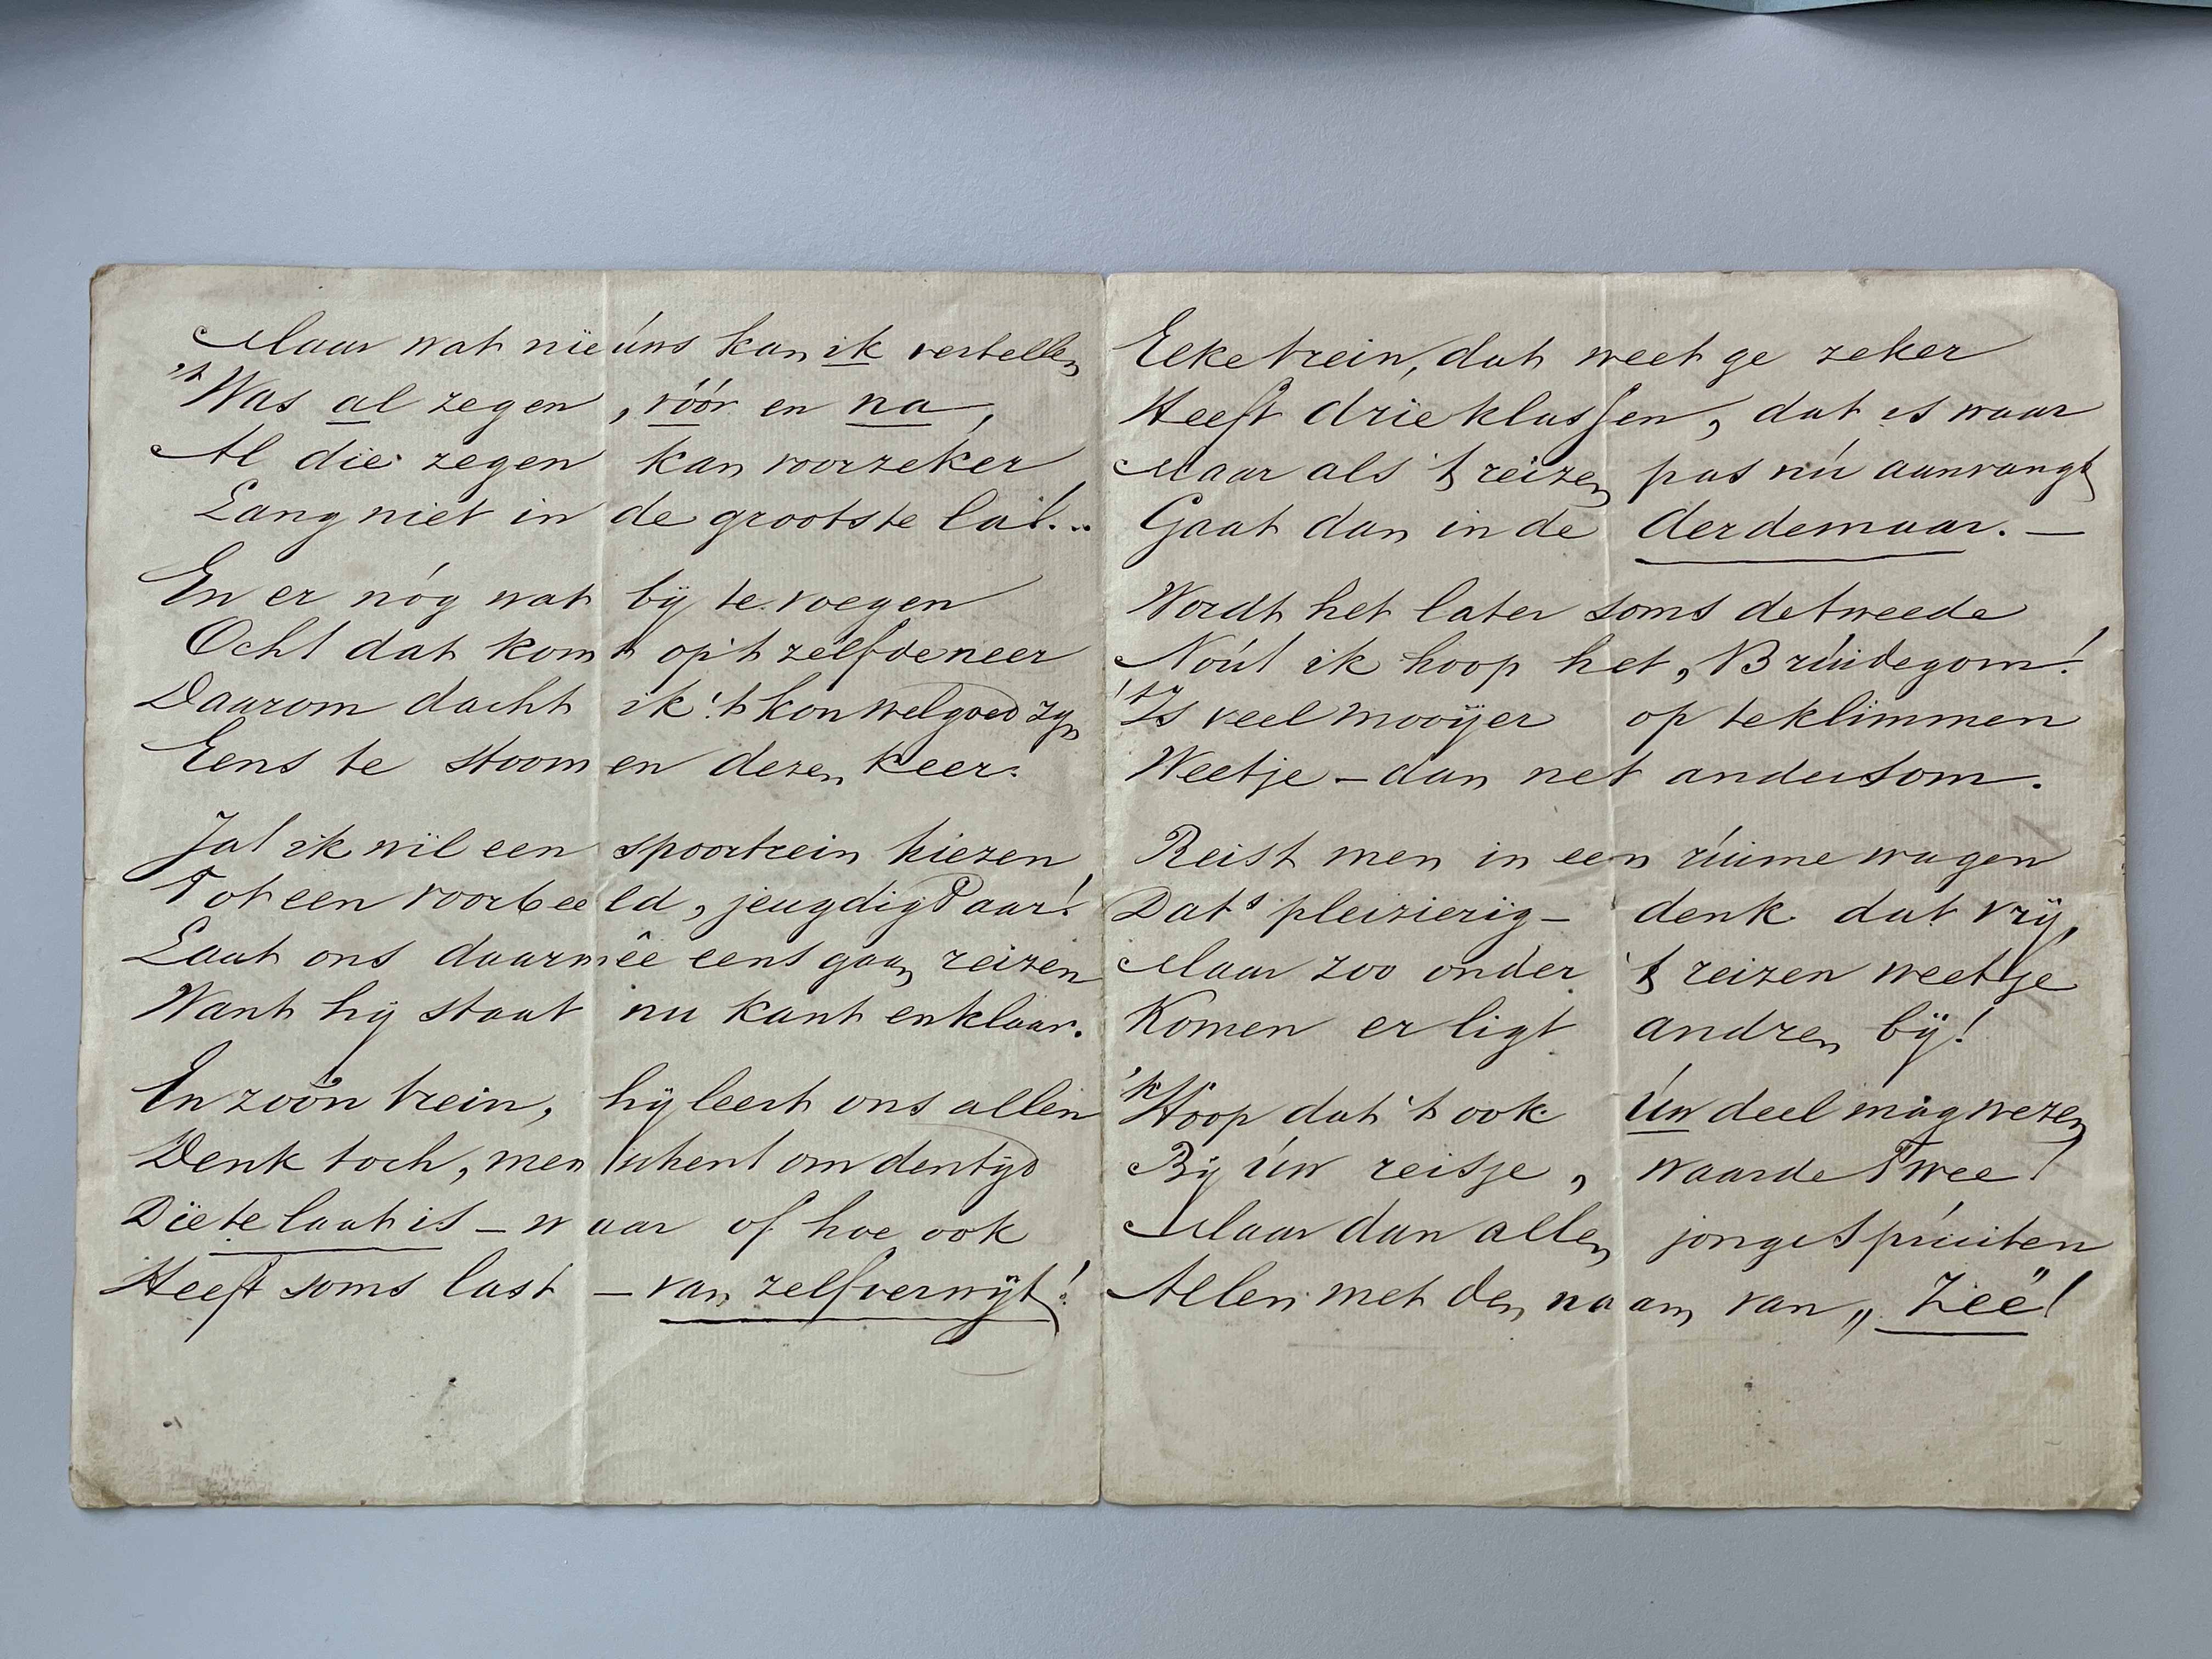 Maar wat nieuws kan ik vertellen
't Was al zegen, vóór en na,
Al die zegen kan voorzeker
Lang niet in de grootste la!...
En er nóg wat bij te voegen
Och! dat komt op 't zelfde neer
Daarom dacht ik 't kon wel goed zijn
Eens te stoomen dezen keer.
Ja! ik wil een spoortrein kiezen
Tot een voorbeeld, jeugdig Paar!
Laat ons daarmeê eens gaan reizen
Want hij staat nu kant en klaar.
En zoo'n trein, hij leert ons allen
Denk toch, menschen! om den tijd
Die te laat is – waar of hoe ook
Heeft soms last – van zelfverwijt!
Elke trein, dat weet ge zeker
Heeft drie klassen, dat is waar
Maar als 't reizen pas nú aanvangt
Gaat dan in de derde maar. –
Wordt het later soms de tweede
Nóu! ik hoop het, Brúidegom!
't Is veel mooijer op te klimmen
Weetje – dan net andersom.
Reist men in een rúime wagen
Dat's pleizierig – denk dat vrij,
Maar zoo onder 't reizen weetje
Komen er ligt andren bij!
'k Hoop dat 't ook Úw deel mag wezen
Bij úw reisje, waarde Twee!
Maar dan allen jonge Sprúiten
Allen met den naam van „Zeë"!